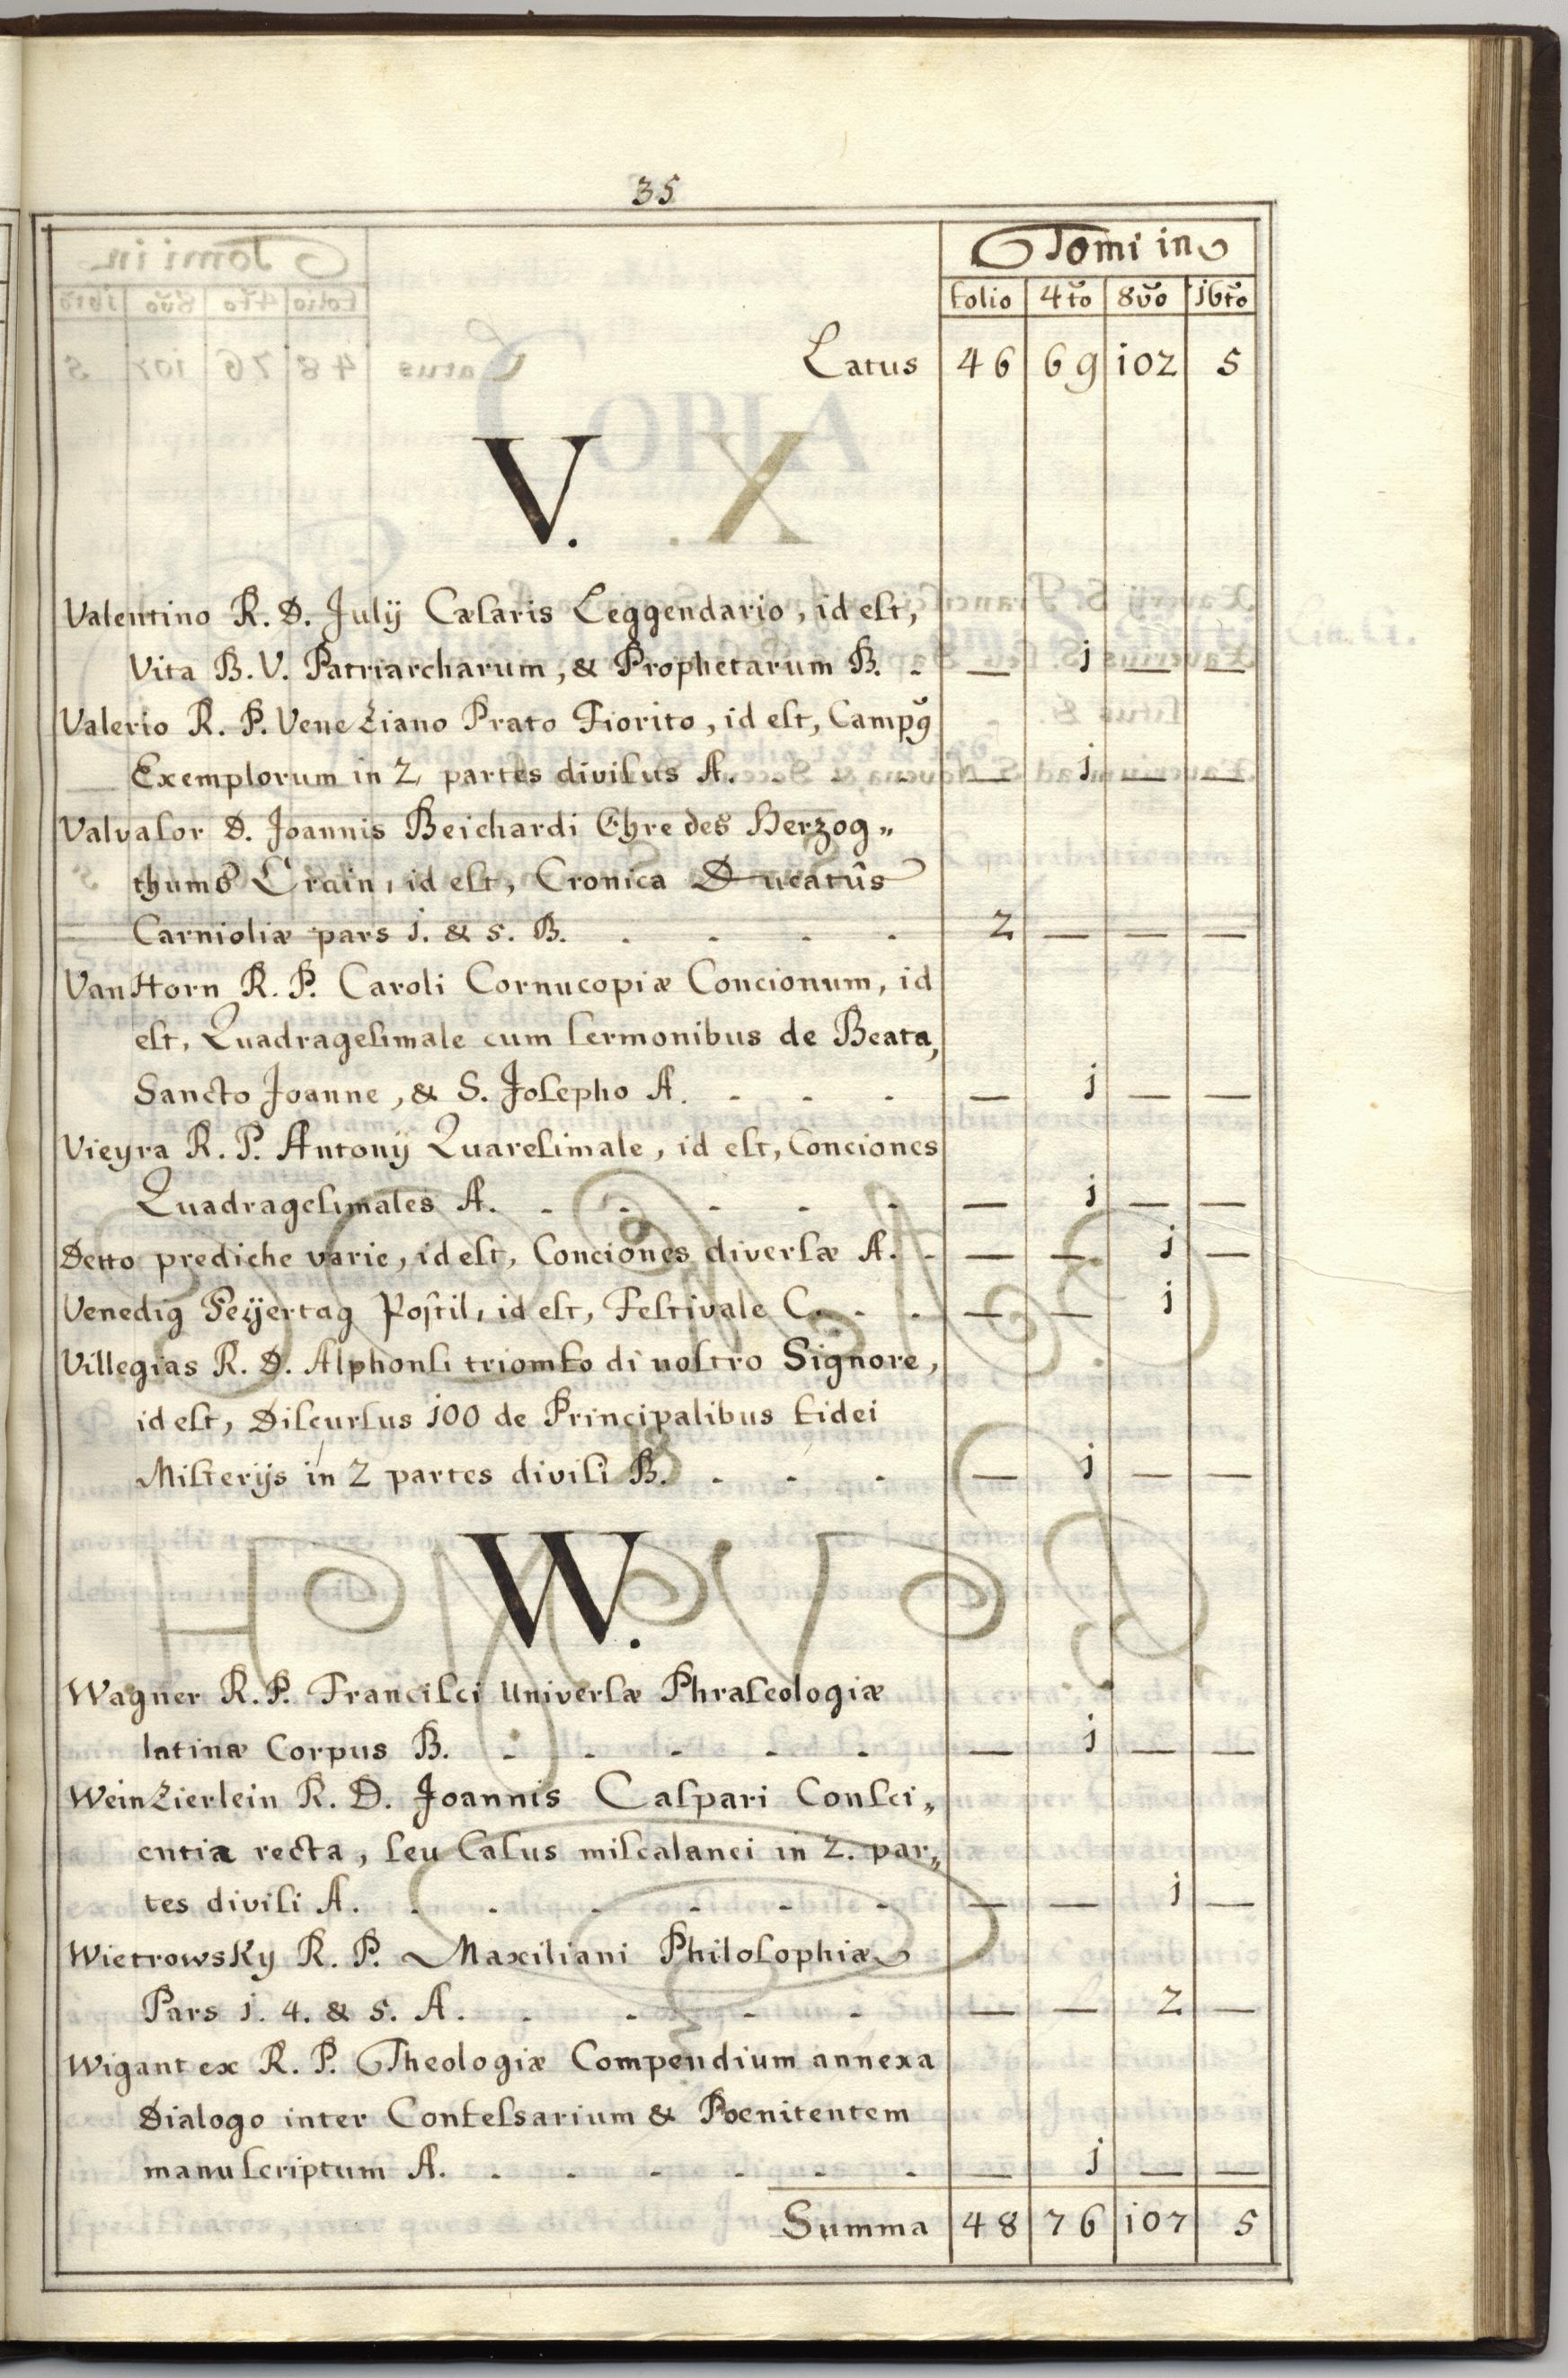 35
Tomi in
folio 4to 8vo 16to
Latus 46 69 102 5
V.
Valentino R. D. Julij Cæsaris Leggendario, id est,
Vita B. V. Patriarcharum, & Prophetarum B. - — 1 — —
Valerio R. P. Veneziano Prato Fiorito, id est, Campus
Exemplorum in 2 partes divisus A. - - - — 1 — —
Valvasor D. Joannis Beichardi Ehre des Herzog„
thums Crain, id est, Cronica Ducatûs
Carnioliæ pars 1. & 5. B. . . . . 2 — — —
Van Horn R. P. Caroli Cornucopiæ Concionum, id
est, Quadragesimale cum sermonibus de Beata,
Sancto Joanne, & S. Josepho A. - - - — 1 — —
Vieyra R. P. Antonij Quaresimale, id est, Conciones
Quadragesimales A. - - - - - — 1 — —
Detto prediche varie, id est, Conciones diversæ A. - — — 1 —
Venedig Feyertag Postil, id est, Festivale C. - - — — 1
Villegias R. D. Alphonsi triomfo di nostro Signore,
id est, Discursus 100 de Principalibus fidei
Misterijs in 2 partes divisi B. - - - — 1 — —
W.
Wagner R. P. Francisci Universæ Phraseologiæ
latinæ Corpus B. - - - - - — 1 — —
Weinzierlein R. D. Joannis Caspari Consci„
entia recta, seu Casus miscalanei in 2. par„
tes divisi A. - - - - - - — — 1 —
Wietrowsky R. P. Maxiliani Philosophiæ
Pars 1. 4. & 5. A. - - - - — — 2 —
Wigant ex R. P. Theologiæ Compendium annexa
Dialogo inter Confessarium & Poenitentem
manuscriptum A. - - - - - - — 1 — —
Summa 48 76 107 5